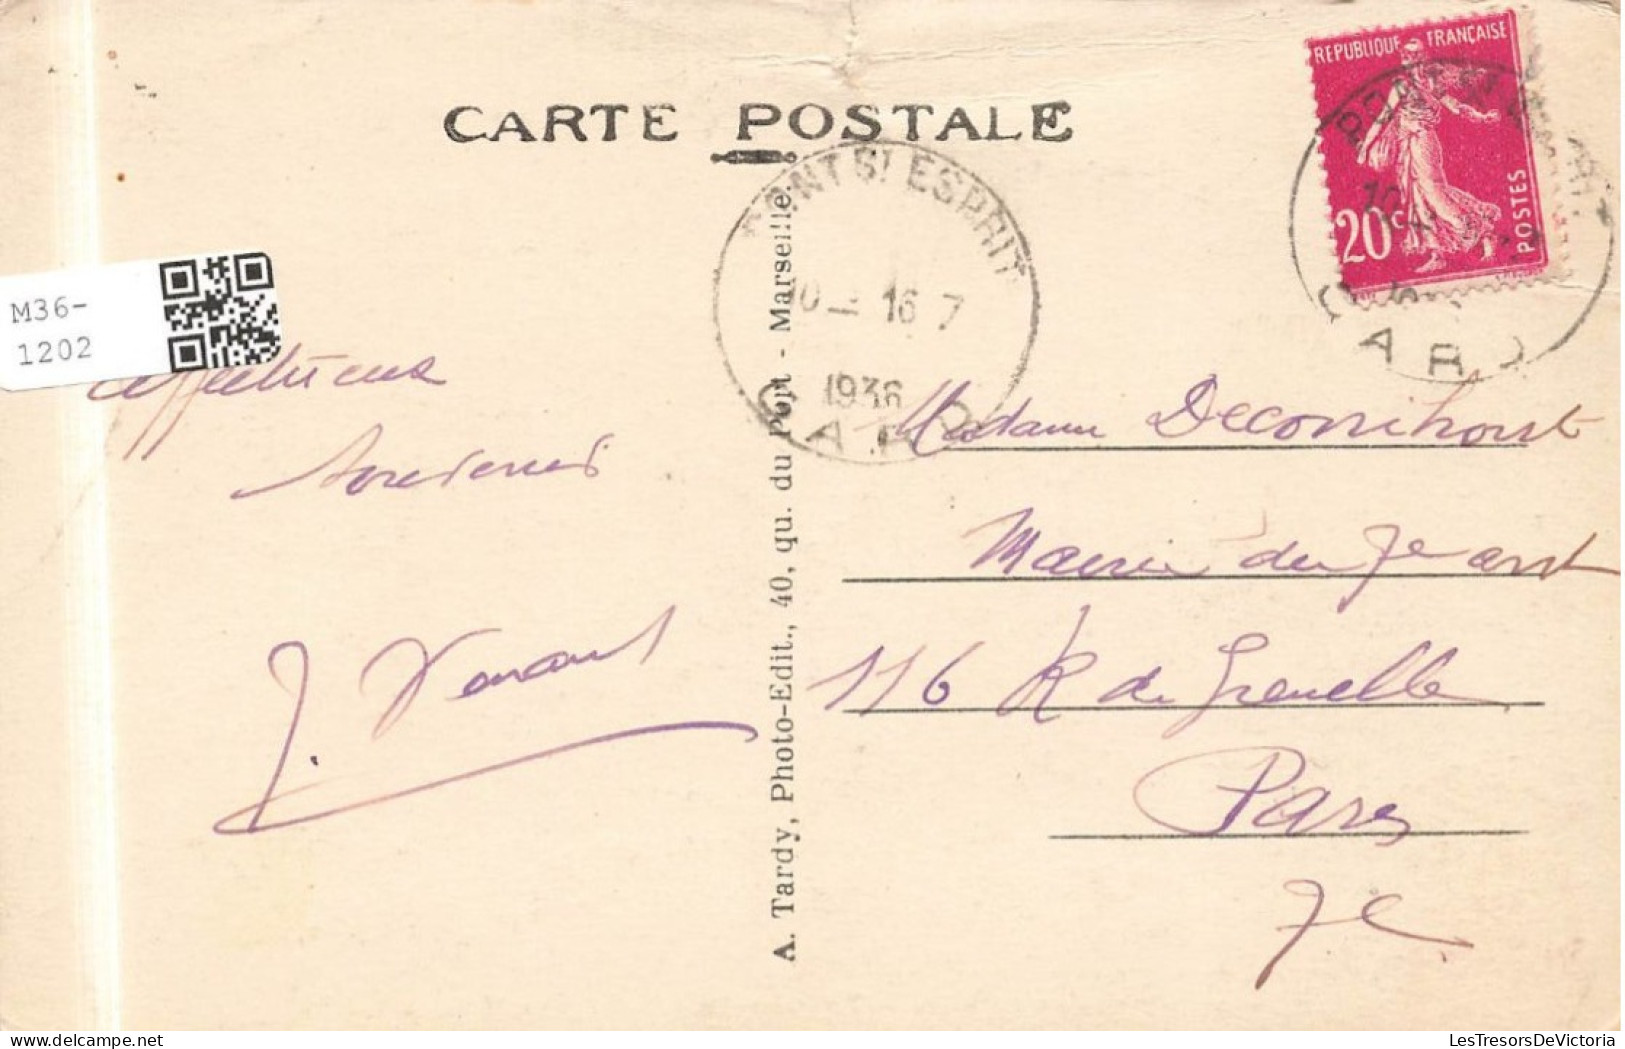 CARTE POSTALE
REPUBLIQUE FRANÇAISE
20c
POSTES
PONT ST ESPRIT
10 - 16 7
1936
GARD
GARD
M36-
1202
A. Tardy, Photo-Edit., 40, qu. du Port - Marseille.
affectueux
souvenirs
J.
Madame
Mairie du 7e arrdt
116 R de Grenelle
Paris
7e
LesTresorsDeVictoria
delcampe.net